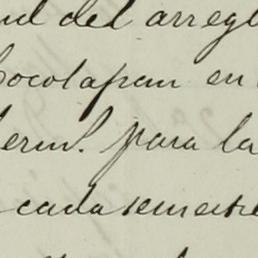 del arregl
ocolapan en
erml. para la
cada semestre